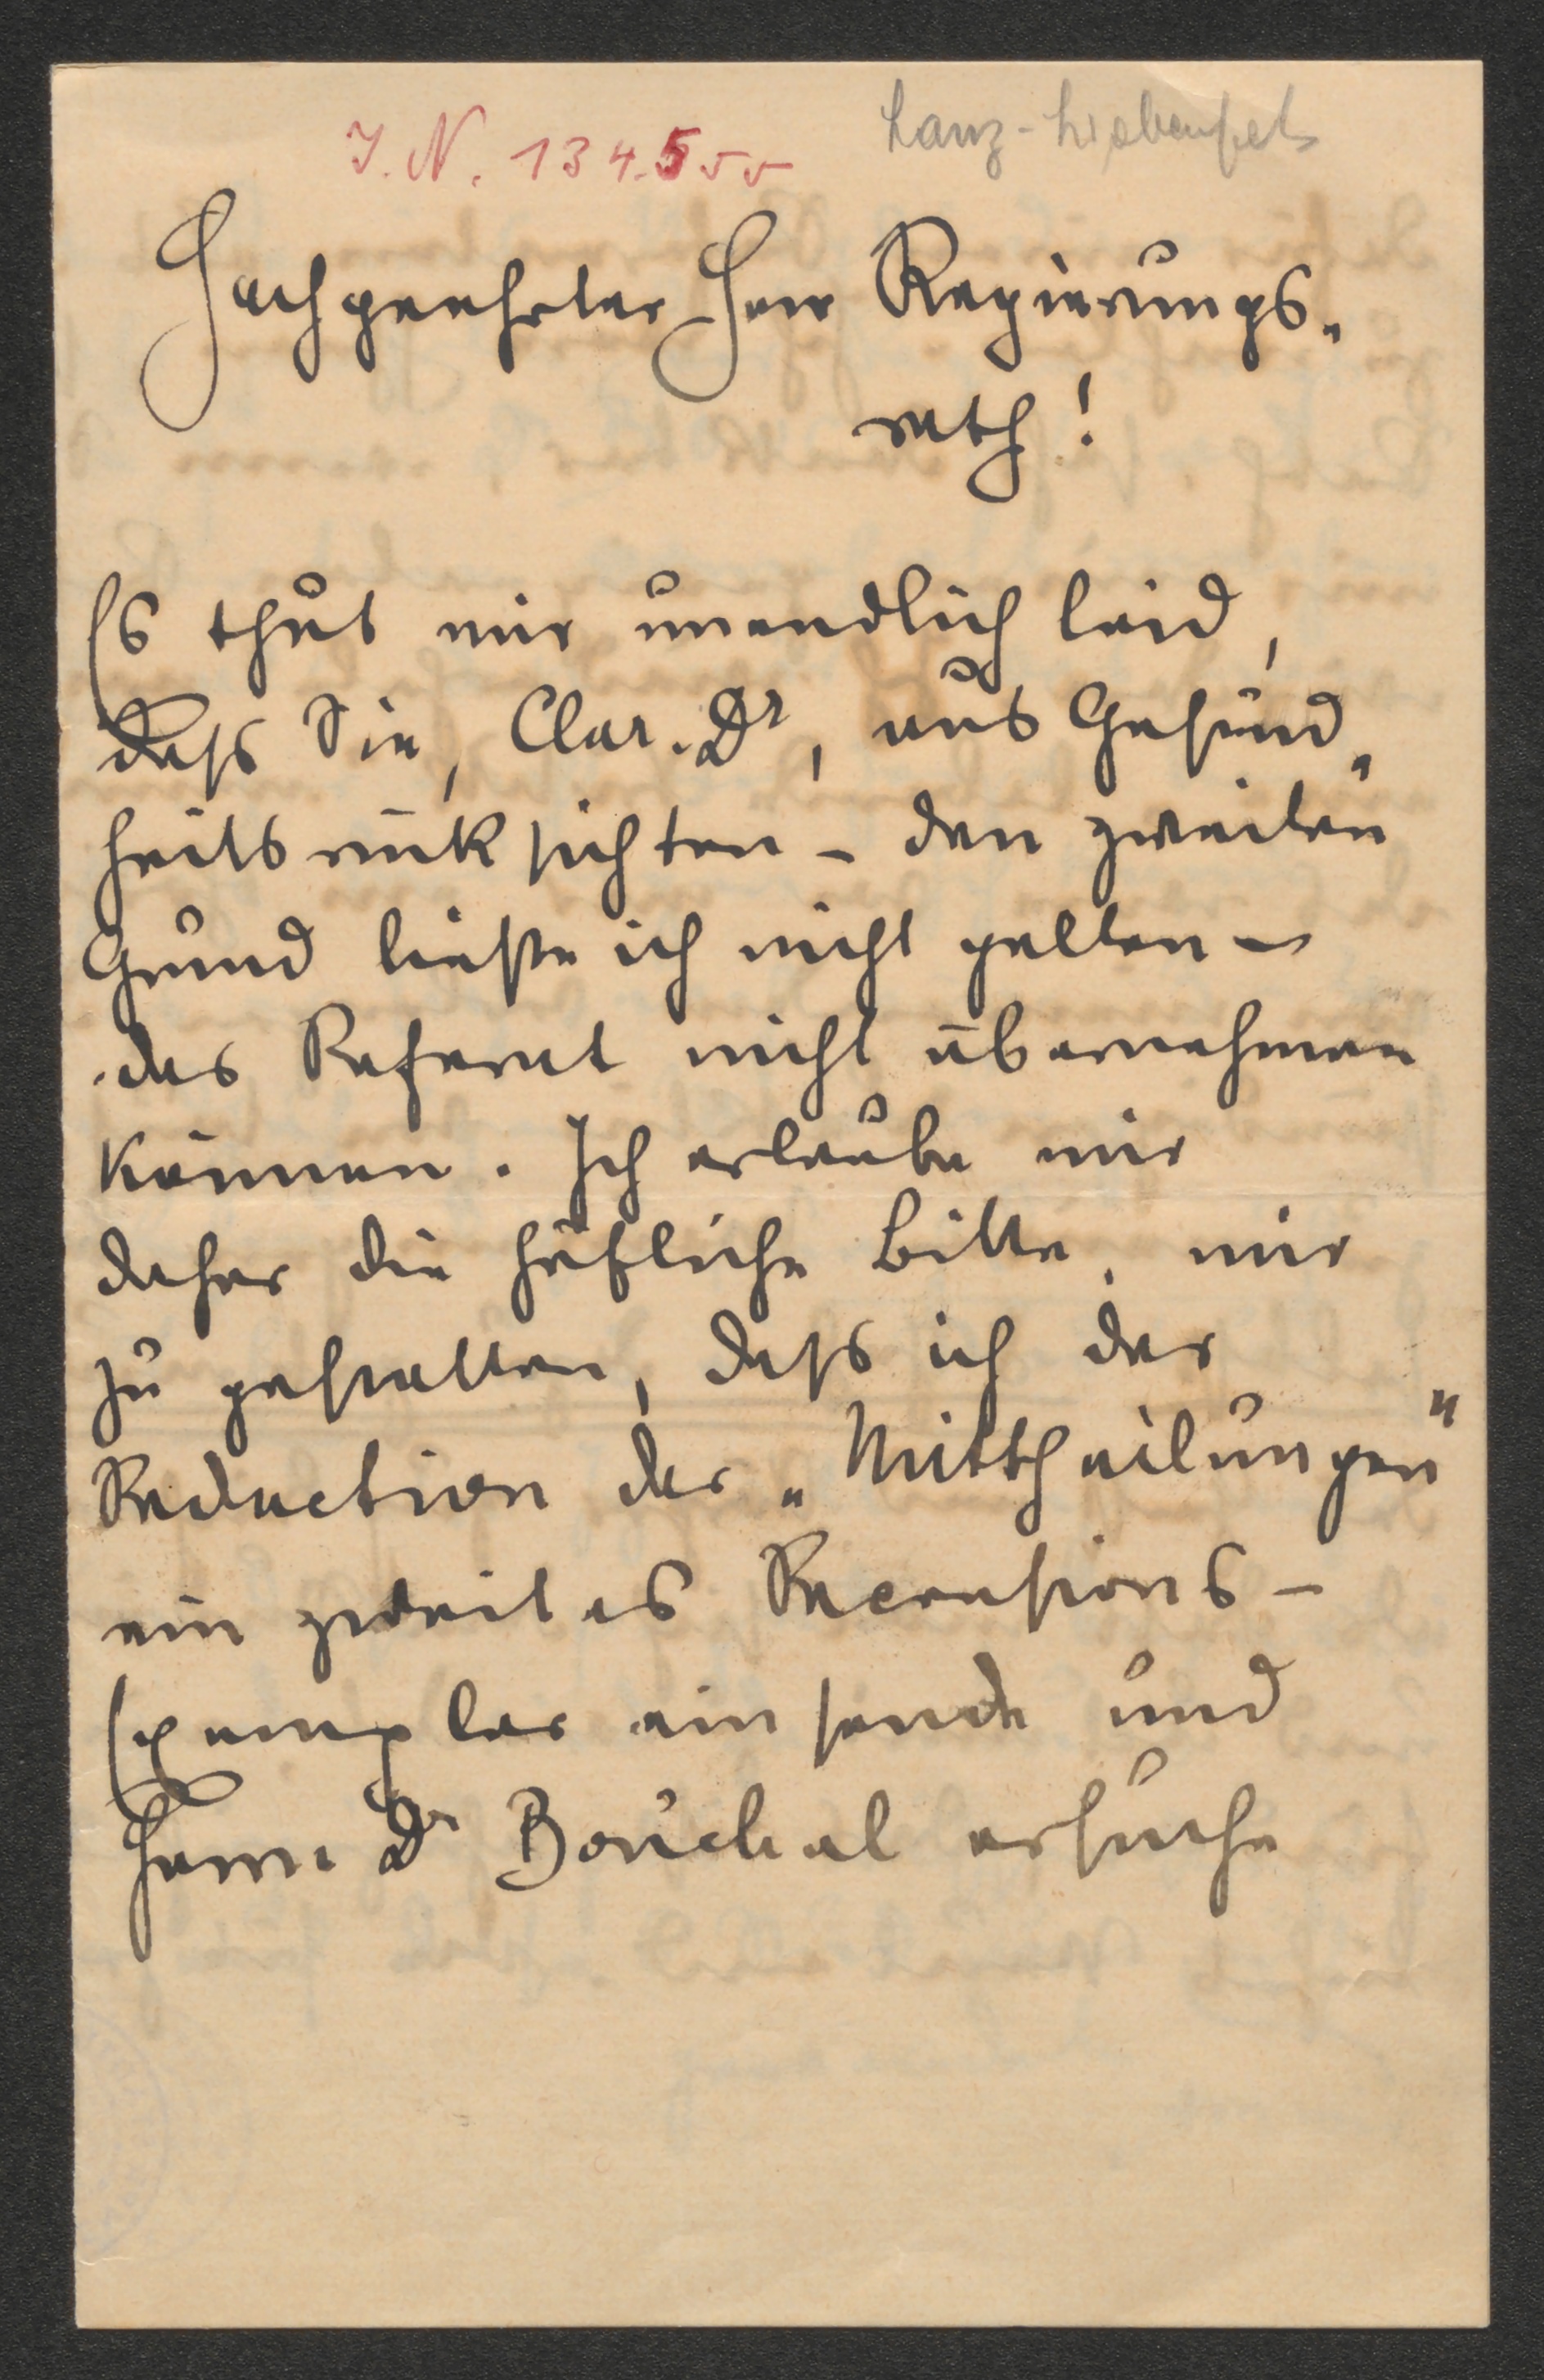 I. N. 134.555
Lanz-Liebenfels
Hochgeehrter Herr Regierungs„
rath!
Es thut mir unendlich leid,
dass Sie, Clar. Dr, aus Gesund„
heitsrüksichten – den zweiten
Grund ließe ich nicht gelten –
das Referat nicht übernehmen
können. Ich erlaube mir
daher die höfliche Bitte, mir
zu gestatten, dass ich der
Redaction der „Mittheilungen“
ein zweites Recensions-
Exemplar einsende und
Herrn Dr Bouchal ersuche